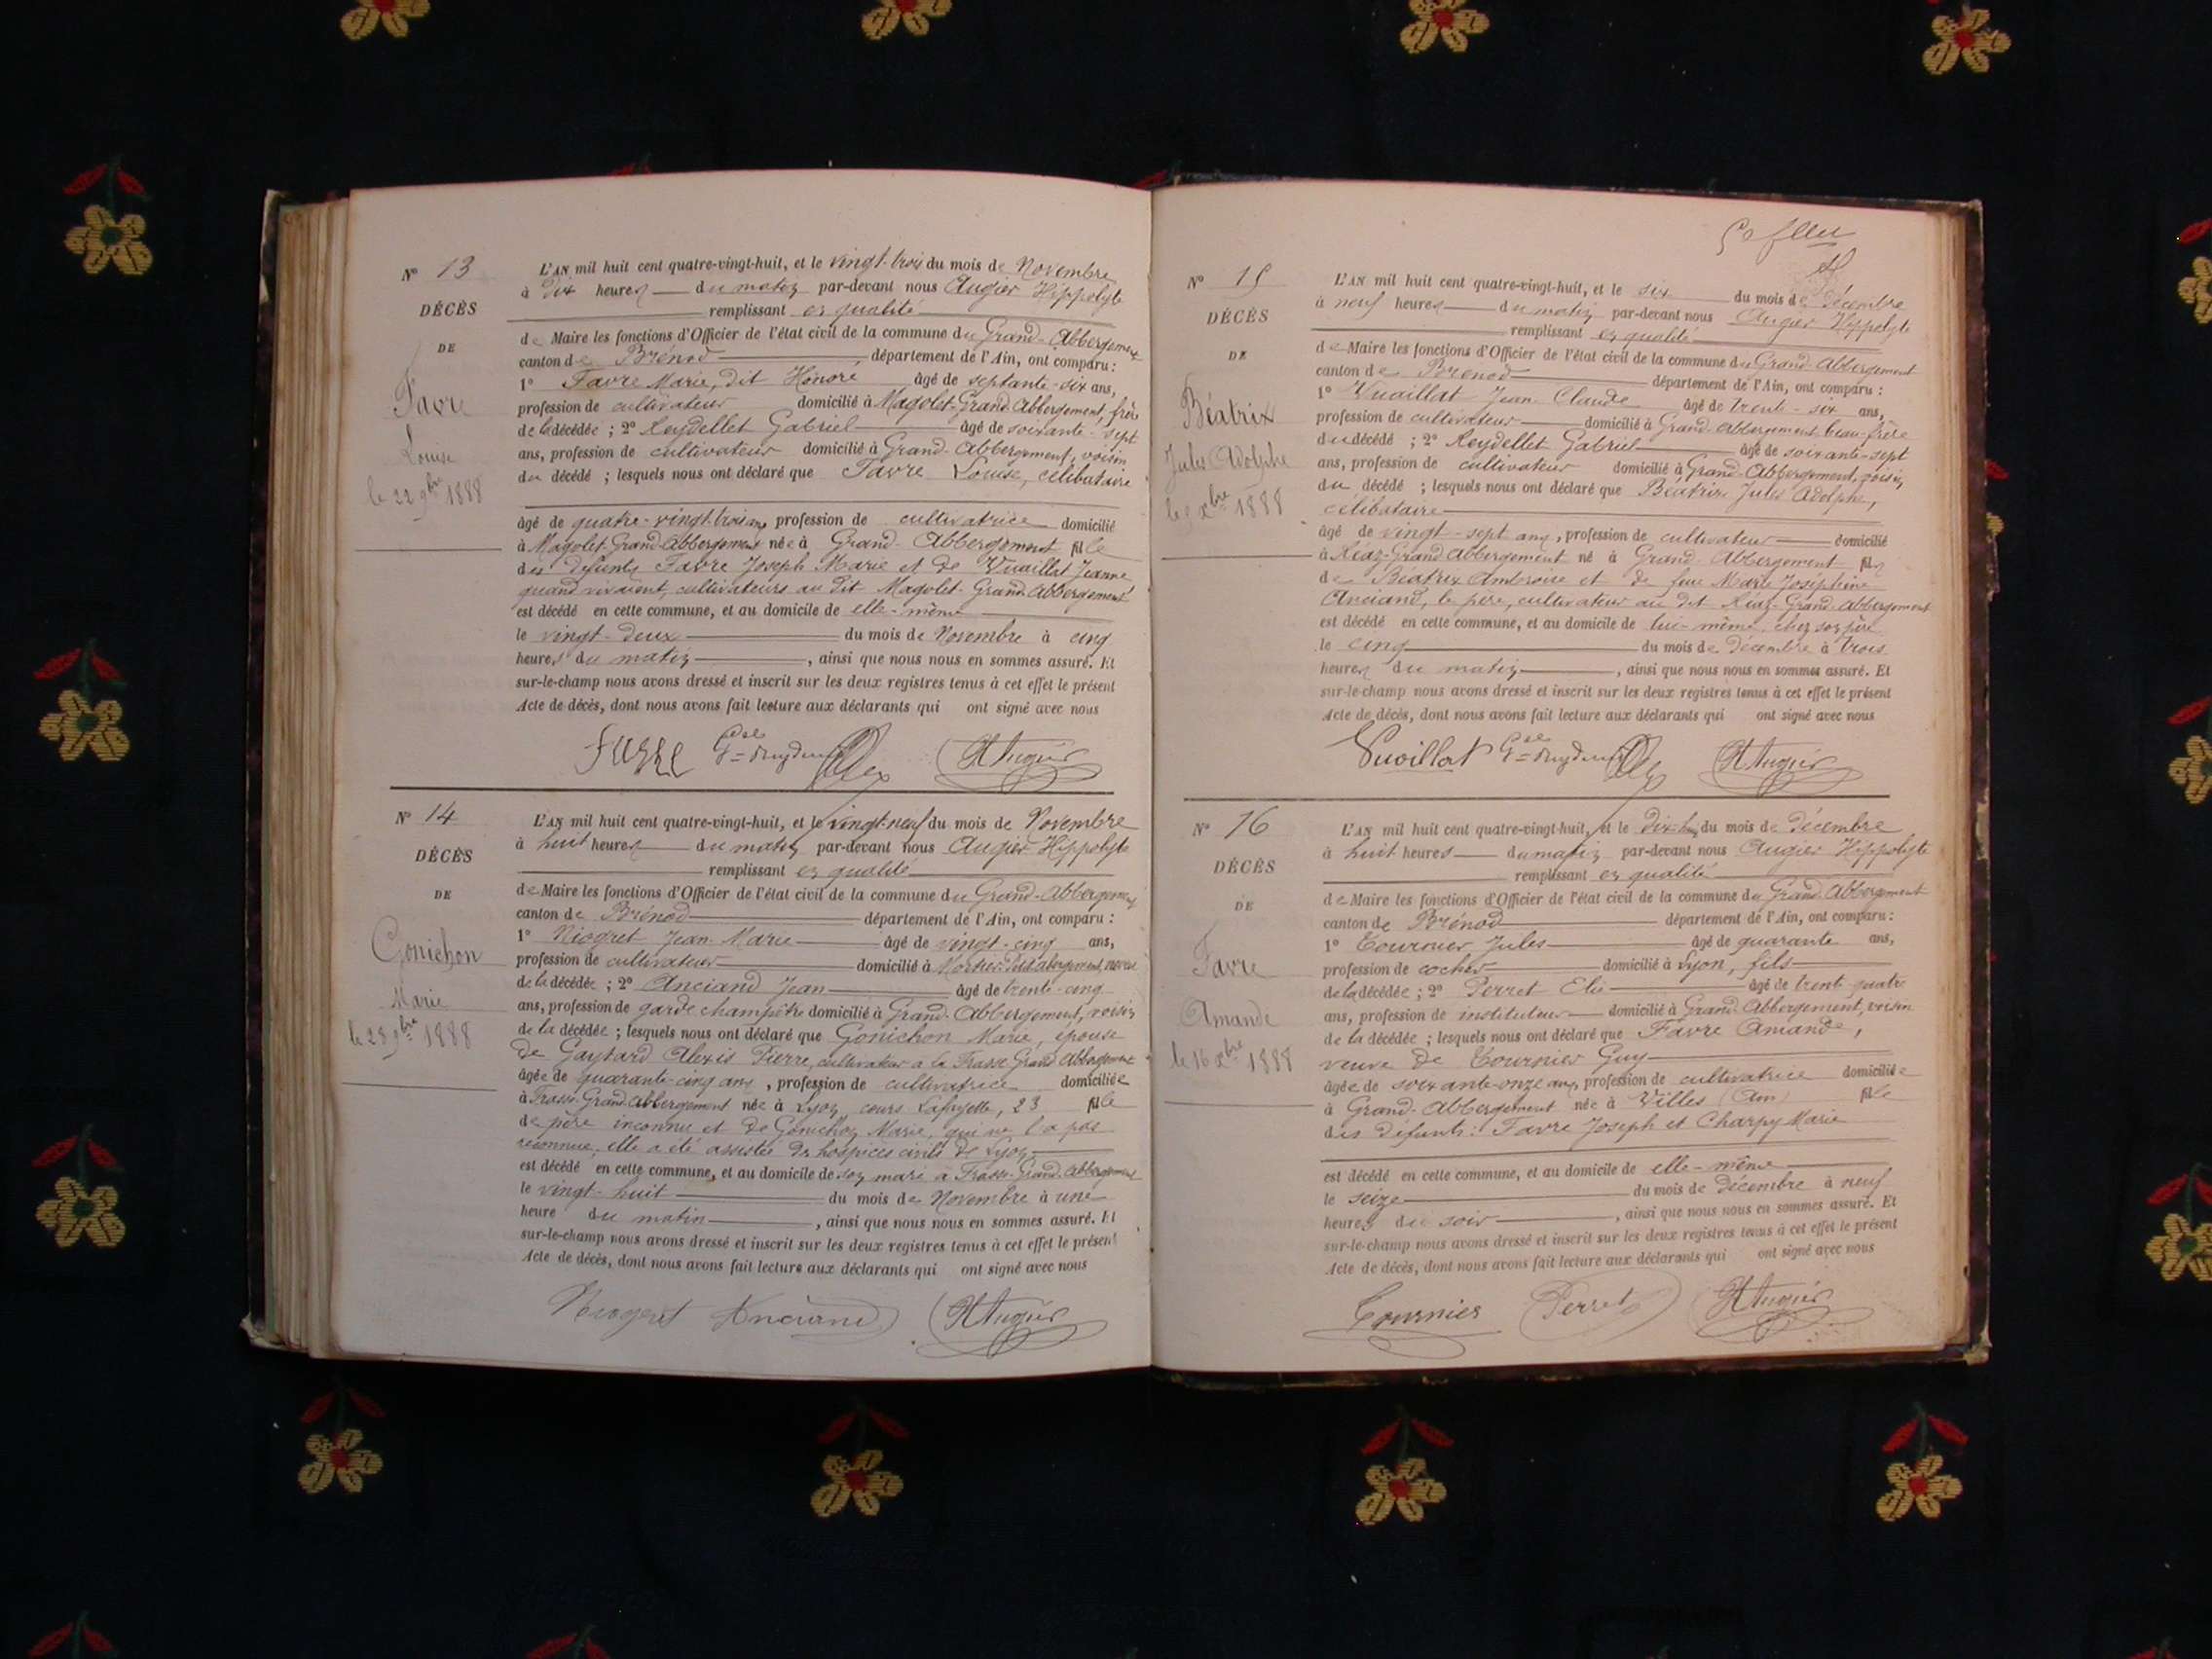 N° 13
DÉCÈS
DE
Favre
Louise
le 22 9bre 1888
L'AN mil huit cent quatre-vingt-huit, et le vingt-trois du mois de Novembre
à dix heures du matin par-devant nous Augier Hippolyte
remplissant en qualité
de Maire les fonctions d'Officier de l'état civil de la commune du Grand-Abbergement
canton de Brénod département de l'Ain, ont comparu :
1° Favre Marie, dit Honoré âgé de septante-six ans,
profession de cultivateur domicilié à Magolet-Grand-Abbergement, frère
de la décédée ; 2° Reydellet Gabriel âgé de soixante-sept
ans, profession de cultivateur domicilié à Grand-Abbergement, voisin
du décédé ; lesquels nous ont déclaré que Favre Louise, célibataire
âgé de quatre-vingt-trois ans profession de cultivatrice domicilié
à Magolet-Grand-Abbergement née à Grand-Abbergement fille
des défunts Favre Joseph Marie et de Vuaillat Jeanne
quand vivaient, cultivateurs au dit Magolet-Grand-Abbergement
est décédé en cette commune, et au domicile de elle-même
le vingt-deux du mois de Novembre à cinq
heures du matin, ainsi que nous nous en sommes assuré. Et
sur-le-champ nous avons dressé et inscrit sur les deux registres tenus à cet effet le présent
Acte de décès, dont nous avons fait lecture aux déclarants qui ont signé avec nous
H Augier
N° 14
DÉCÈS
DE
Gonichon
Marie
le 28 9bre 1888
L'AN mil huit cent quatre-vingt-huit, et le vingt-neuf du mois de Novembre
à huit heures du matin par-devant nous Augier Hippolyte
remplissant en qualité
de Maire les fonctions d'Officier de l'état civil de la commune du Grand-Abbergement
canton de Brénod département de l'Ain, ont comparu :
1° Niogret Jean-Marie âgé de vingt-cinq ans,
profession de cultivateur domicilié à Petit abergement, neveu
de la décédée ; 2° Anciand Jean âgé de trente-cinq
ans, profession de garde champêtre domicilié à Grand-Abbergement, voisin
de la décédée ; lesquels nous ont déclaré que Gonichon Marie, épouse
de Alexis Pierre, cultivateur à la Frasse Grand Abbergement
âgée de quarante-cinq ans, profession de cultivatrice domiciliée
à Frasse-Grand-Abbergement née à Lyon, cours Lafayette, 23 fille
de père inconnu et de Gonichon Marie, qui ne l'a pas
reconnue, elle a été assistée des hospices civils de Lyon
est décédé en cette commune, et au domicile de son mari à Frasse-Grand-Abbergement
le vingt-huit du mois de Novembre à une
heure du matin, ainsi que nous nous en sommes assuré. Et
sur-le-champ nous avons dressé et inscrit sur les deux registres tenus à cet effet le présent
Acte de décès, dont nous avons fait lecture aux déclarants qui ont signé avec nous
Niogret Anciand H Augier
N° 15
DÉCÈS
DE
Béatrix
Jules Adolphe
le 5 Xbre 1888
L'AN mil huit cent quatre-vingt-huit, et le six du mois de décembre
à neuf heures du matin par-devant nous Augier Hippolyte
remplissant en qualité
de Maire les fonctions d'Officier de l'état civil de la commune du Grand-Abbergement
canton de Brenod département de l'Ain, ont comparu :
1° Vuaillat Jean-Claude âgé de trente-six ans,
profession de cultivateur domicilié à Grand-Abbergement beau-frère
du décédé ; 2° Reydellet Gabriel âgé de soixante-sept
ans, profession de cultivateur domicilié à Grand-Abbergement, voisin
du décédé ; lesquels nous ont déclaré que Béatrix Jules Adolphe,
célibataire
âgé de vingt-sept ans, profession de cultivateur domicilié
à Grand-Abbergement né à Grand-Abbergement fils
de Béatrix Ambroise et de feue Marie Joséphine
Anciand, le père, cultivateur au dit Grand-Abbergement
est décédé en cette commune, et au domicile de lui-même, chez son père
le cinq du mois de décembre à trois
heures du matin, ainsi que nous nous en sommes assuré. Et
sur-le-champ nous avons dressé et inscrit sur les deux registres tenus à cet effet le présent
Acte de décès, dont nous avons fait lecture aux déclarants qui ont signé avec nous
Vuoillat H Augier
N° 16
DÉCÈS
DE
Favre
Amande
le 16 Xbre 1888
L'AN mil huit cent quatre-vingt-huit, et le dix-huit du mois de décembre
à huit heures du matin par-devant nous Augier Hippolyte
remplissant en qualité
de Maire les fonctions d'Officier de l'état civil de la commune du Grand-Abbergement
canton de Brénod département de l'Ain, ont comparu :
1° Tournier Jules âgé de quarante ans,
profession de cocher domicilié à Lyon, fils
de la décédée ; 2° Perret Elie âgé de trente-quatre
ans, profession de instituteur domicilié à Grand-Abbergement, voisin
de la décédée ; lesquels nous ont déclaré que Favre Amande,
veuve de Tournier Guy
âgée de soixante-onze ans, profession de cultivatrice domiciliée
à Grand-Abbergement née à Villes (Ain) fille
des défunts : Favre Joseph et Charpy Marie
est décédé en cette commune, et au domicile de elle-même
le seize du mois de décembre à neuf
heures du soir, ainsi que nous nous en sommes assuré. Et
sur-le-champ nous avons dressé et inscrit sur les deux registres tenus à cet effet le présent
Acte de décès, dont nous avons fait lecture aux déclarants qui ont signé avec nous
Tournier Perret H Augier